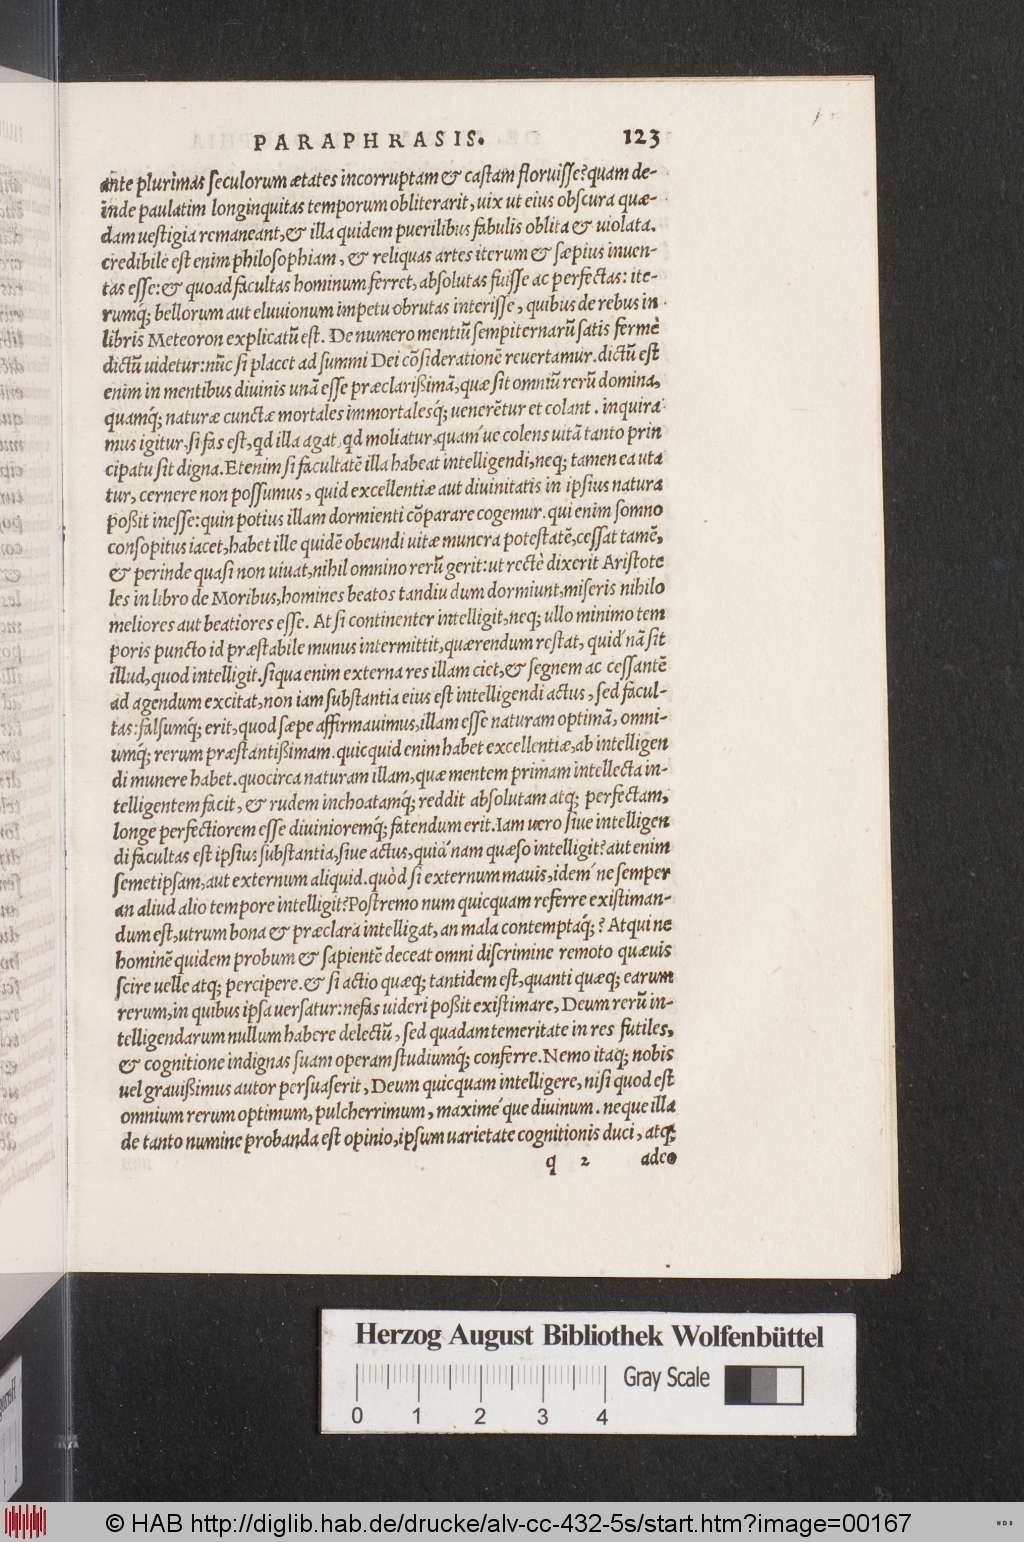 PARAPHRASIS. 123
ante plurimas seculorum ætates incorruptam & castam floruisse? quam de-
inde paulatim longinquitas temporum obliterarit, uix ut eius obscura quæ-
dam uestigia remaneant, & illa quidem puerilibus fabulis oblita & uiolata.
credibile est enim philosophiam, & reliquas artes iterum & sæpius inuen-
tas esse: & quoad facultas hominum ferret, absolutas fuisse ac perfectas: ite-
rumq; bellorum aut eluuionum impetu obrutas interisse, quibus de rebus in
libris Meteoron explicatũ est. De numero mentiũ sempiternarũ satis fermè
dictũ uidetur: nũc si placet ad summi Dei cõsiderationẽ reuertamur. dictũ est
enim in mentibus diuinis unã esse præclarißimã, quæ sit omniũ rerũ domina,
quamq́; naturæ cunctæ mortales immortalesq́; uenerẽtur et colant. inquira
mus igitur, si fas est, qd illa agat, qd moliatur, quam´ue colens uitã tanto prin
cipatu sit digna. Etenim si facultatẽ illa habeat intelligendi, neq; tamen ea uta
tur, cernere non possumus, quid excellentiæ aut diuinitatis in ipsius natura
poßit inesse: quin potius illam dormienti cõparare cogemur. qui enim somno
consopitus iacet, habet ille quidẽ obeundi uitæ munera potestatẽ, cessat tamẽ,
& perinde quasi non uiuat, nihil omnino rerũ gerit: ut rectè dixerit Aristote
les in libro de Moribus, homines beatos tandiu dum dormiunt, miseris nihilo
meliores aut beatiores esse. At si continenter intelligit, neq; ullo minimo tem
poris puncto id præstabile munus intermittit, quærendum restat, quid´nã sit
illud, quod intelligit. siqua enim externa res illam ciet, & segnem ac cessantẽ
ad agendum excitat, non iam substantia eius est intelligendi actus, sed facul-
tas: falsumq́; erit, quod sæpe affirmauimus, illam esse naturam optimã, omni-
umq́; rerum præstantißimam. quicquid enim habet excellentiæ, ab intelligen
di munere habet. quocirca naturam illam, quæ mentem primam intellecta in-
telligentem facit, & rudem inchoatamq́; reddit absolutam atq; perfectam,
longe perfectiorem esse diuinioremq́; fatendum erit. Iam uero siue intelligen
di facultas est ipsius substantia, siue actus, quid´nam quæso intelligit? aut enim
semetipsam, aut externum aliquid. quòd si externum mauis, idem´ne semper
an aliud alio tempore intelligit? Postremo num quicquam referre existiman-
dum est, utrum bona & præclara intelligat, an mala contemptaq́;? Atqui ne
hominẽ quidem probum & sapientẽ deceat omni discrimine remoto quæuis
scire uelle atq; percipere. & si actio quæq; tantidem est, quanti quæq; earum
rerum, in quibus ipsa uersatur: nefas uideri poßit existimare, Deum rerũ in-
telligendarum nullum habere delectũ, sed quadam temeritate in res futiles,
& cognitione indignas suam operam studiumq́; conferre. Nemo itaq; nobis
uel grauißimus autor persuaserit, Deum quicquam intelligere, nisi quod est
omnium rerum optimum, pulcherrimum, maxime´que diuinum. neque illa
de tanto numine probanda est opinio, ipsum uarietate cognitionis duci, atq;
q 2 adeo
Herzog August Bibliothek Wolfenbüttel
Gray Scale
0 1 2 3 4
© HAB http://diglib.hab.de/drucke/alv-cc-432-5s/start.htm?image=00167